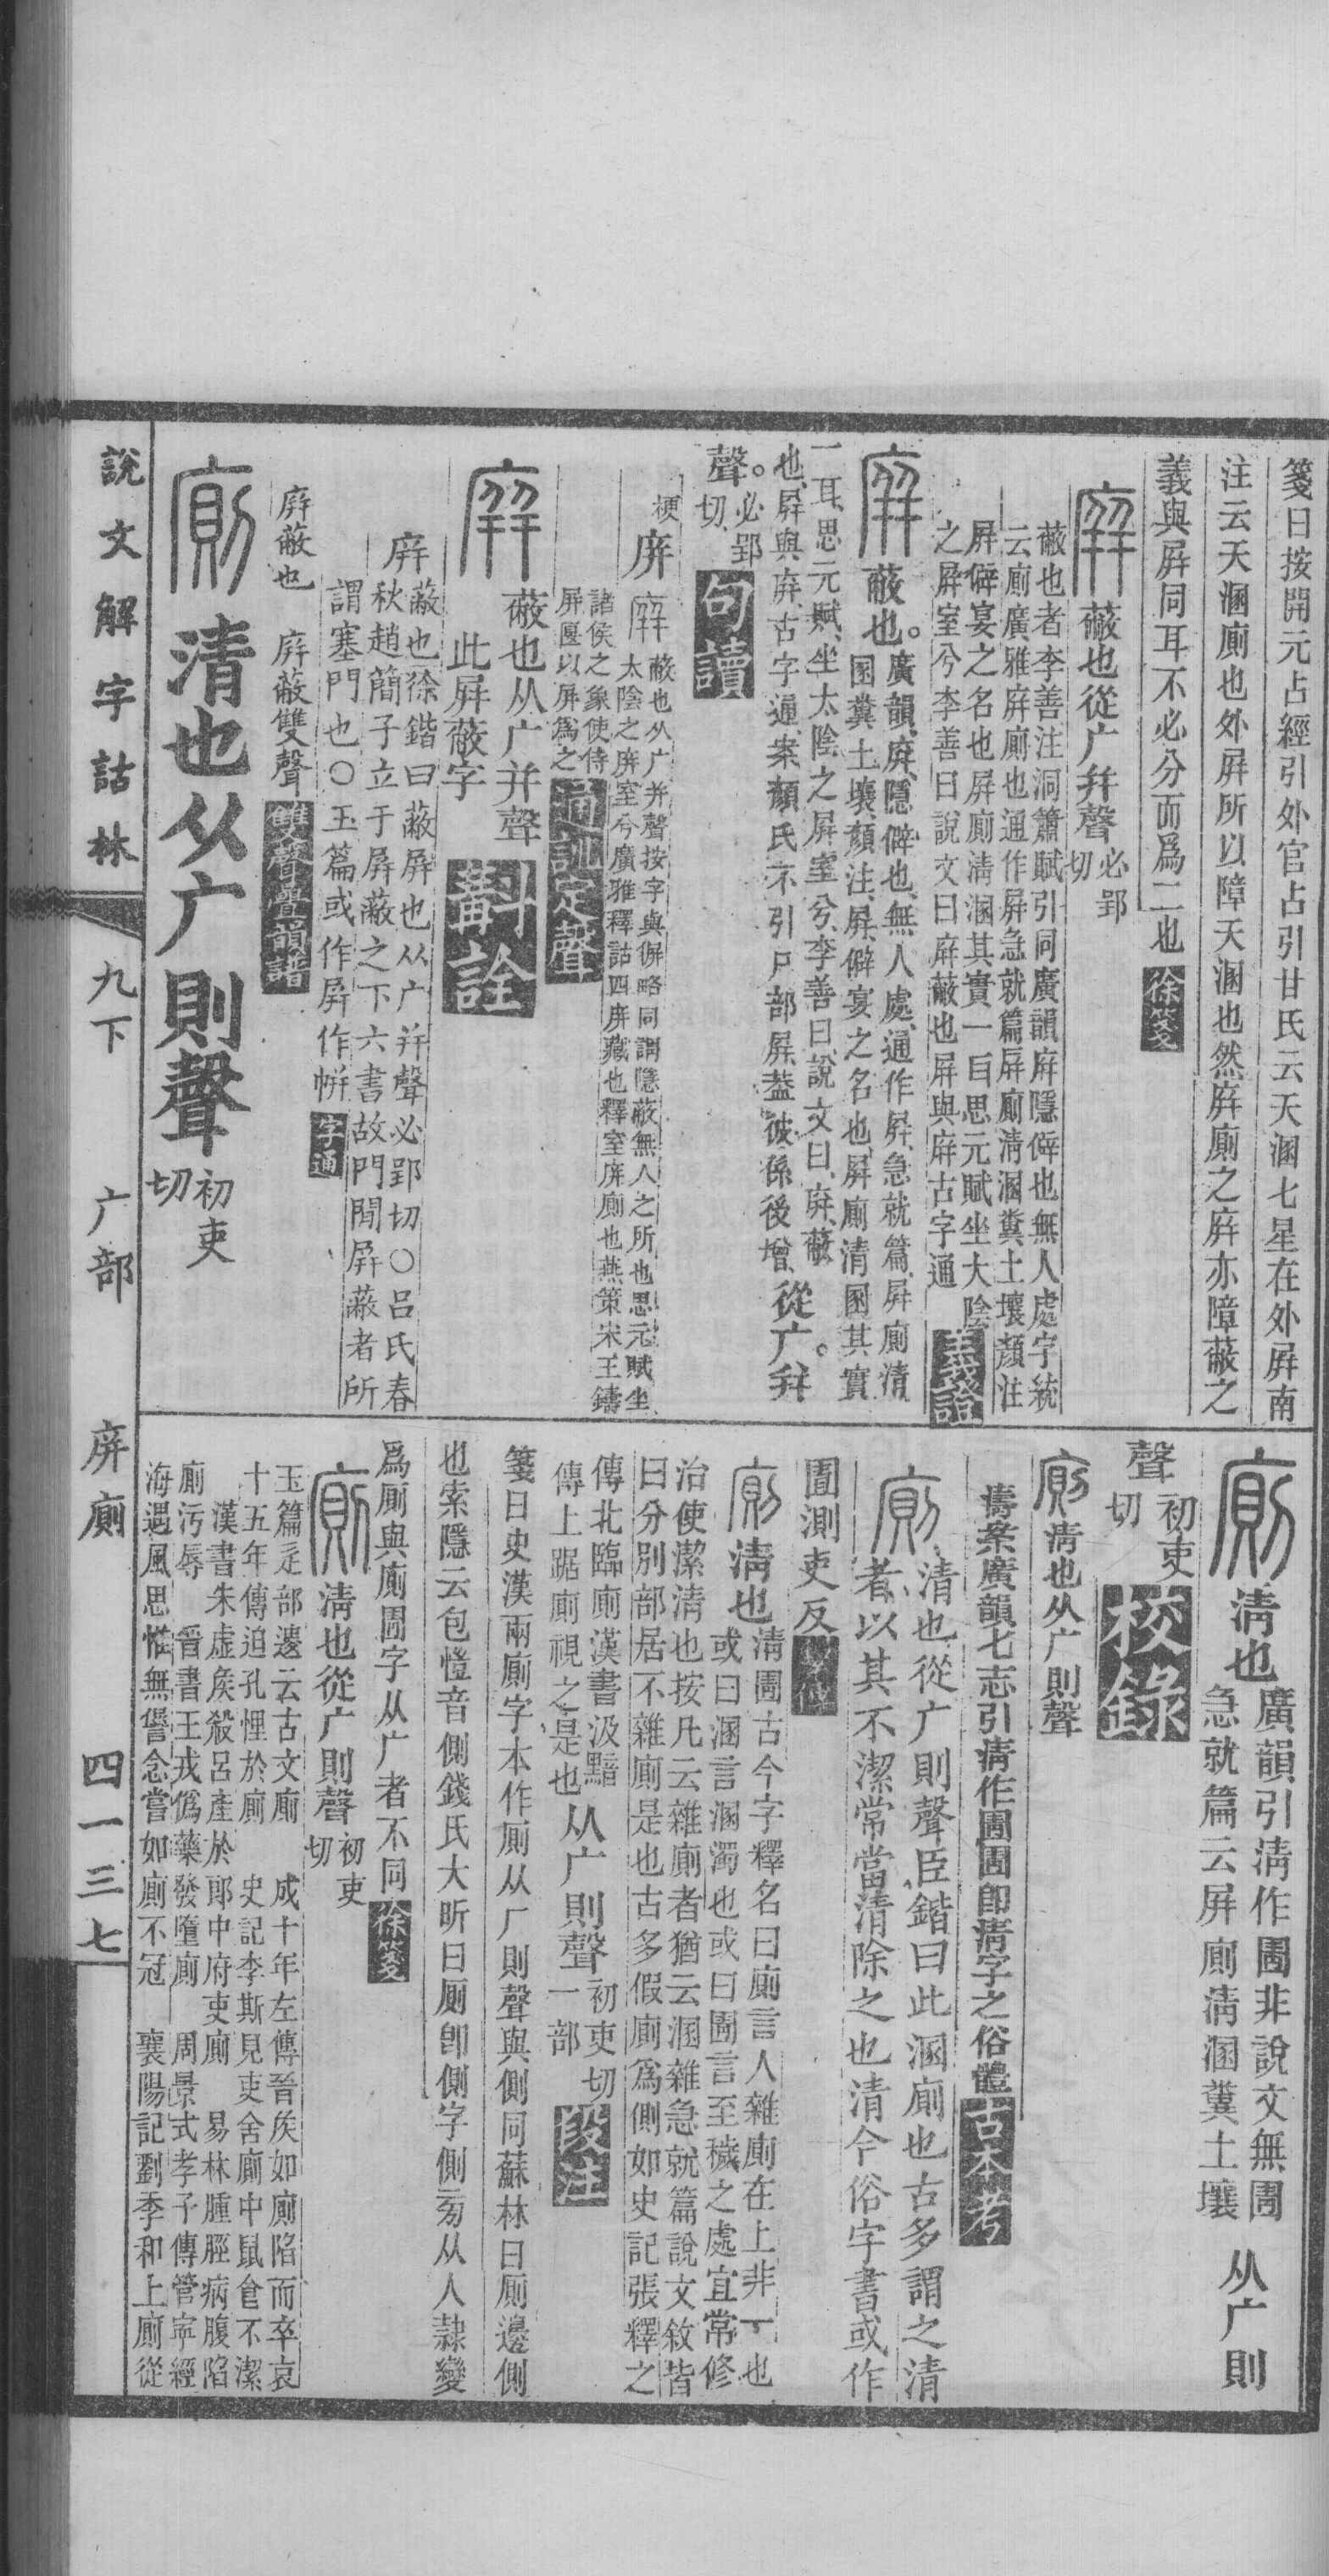 箋曰按開元占經引外官占引甘氏云天溷七星在外屛南
注云天溷廁也外屛所以障天溷也然庰廁之庰亦障蔽之
義與屛同耳不必分而爲二也 徐箋
庰 蔽也從广幷聲 必郢切
蔽也者李善注洞簫賦引同廣韻庰隱僻也無人處字統
云廁廣雅庰廁也通作屛急就篇屛廁淸溷糞土壤顏注
屛僻宴之名也屛廁淸溷其實一目思元賦坐大陰
之屛室兮李善曰說文曰庰蔽也屛與庰古字通 義證
庰 蔽也。廣韻、庰、隱僻也、無人處、通作屛、急就篇、屛廁清
圂糞土壤、顏注、屛、僻宴之名也、屛廁清圂其實
一耳、思元賦、坐太陰之屛室兮、李善曰、說文曰、庰、蔽
也、屛與庰、古字通、案、顏氏不引尸部屛、葢彼係後增、從广。幷
聲。必郢切 句讀
梗 庰 庰 蔽也从广并聲按字與偋略同謂隱蔽無人之所也思元賦坐
太陰之庰室兮廣雅釋詁四庰藏也釋室庰廁也燕策宋王鑄
諸侯之象使侍
屏匽以屏爲之 通訓定聲
庰 蔽也从广并聲
此屛蔽字 斠詮
庰 蔽也徐鍇曰蔽屛也从广幷聲必郢切○呂氏春
秋趙簡子立于屛蔽之下六書故門閒屛蔽者所
謂塞門也○玉篇或作屛作帡 字通
庰蔽也 庰蔽雙聲 雙聲疊韻譜
廁 清也从广則聲 初吏切
廁 淸也 廣韻引淸作圊非說文無圊
急就篇云屛廁淸溷糞土壤 从广則
聲 初吏切 校錄
廁 淸也从广則聲
濤案廣韻七志引淸作圊圊卽淸字之俗體 古本考
廁 清也從广則聲臣鍇曰此溷廁也古多謂之清
者以其不潔常當清除之也清今俗字書或作
圊測吏反 繫傳
廁 淸也 淸圊古今字釋名曰廁言人雜廁在上非一也
或曰溷言溷濁也或曰圊言至穢之處宜常修
治使潔淸也按凡云雜廁者猶云溷雜急就篇說文敘皆
曰分別部居不雜廁是也古多假廁爲側如史記張釋之
傳北臨廁漢書汲黯
傳上踞廁視之是也 从广則聲 初吏切一部 段注
箋曰史漢兩廁字本作厠从厂則聲與側同蘇林曰厠邊側
也索隱云包愷音側錢氏大昕曰厠卽側字側㫄从人隷變
爲厠與廁圊字从广者不同 徐箋
廁 淸也從广則聲 初吏切
玉篇辵部邊云古文廁 成十年左傳晉矦如廁陷而卒哀
十五年傳迫孔悝於廁 史記李斯見吏舍廁中鼠食不潔
漢書朱虛矦殺呂產於郎中府吏廁 易林腫脛病腹陷
廁污辱 晉書王戎僞藥發墮廁 周景式孝子傳管寧經
海遇風思惟無諐念嘗如廁不冠 襄陽記劉季和上廁從
說文解字詁林 九下 广部 庰廁 四一三七